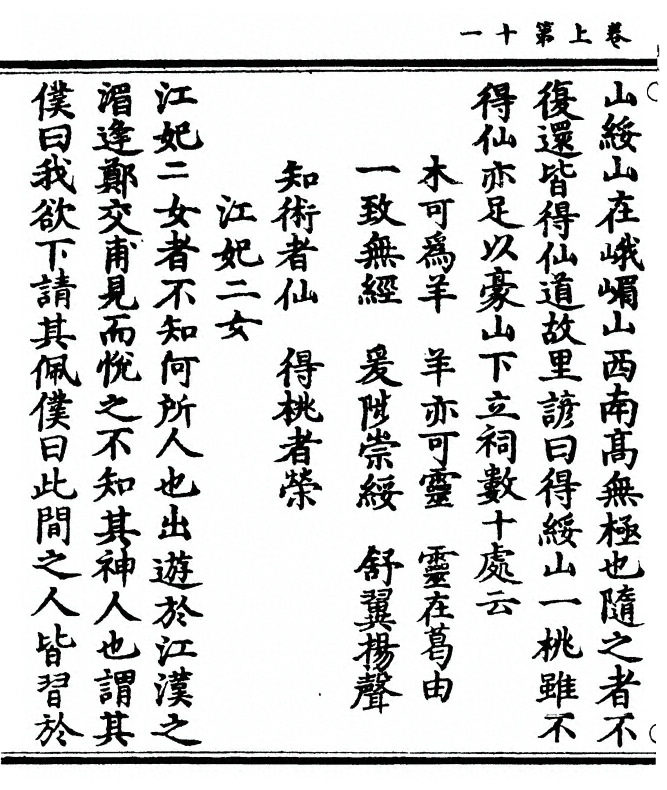 卷上第十一
山綏山在峨嵋山西南高無極也隨之者不
復還皆得仙道故里諺曰得綏山一桃雖不
得仙亦足以豪山下立祠數十處云
木可為羊　羊亦可靈　靈在葛由
一致無經　爰陟崇綏　舒翼揚聲
知術者仙　得桃者榮
江妃二女
江妃二女者不知何所人也出遊於江漢之
湄逢鄭交甫見而悅之不知其神人也謂其
僕曰我欲下請其佩僕曰此間之人皆習於